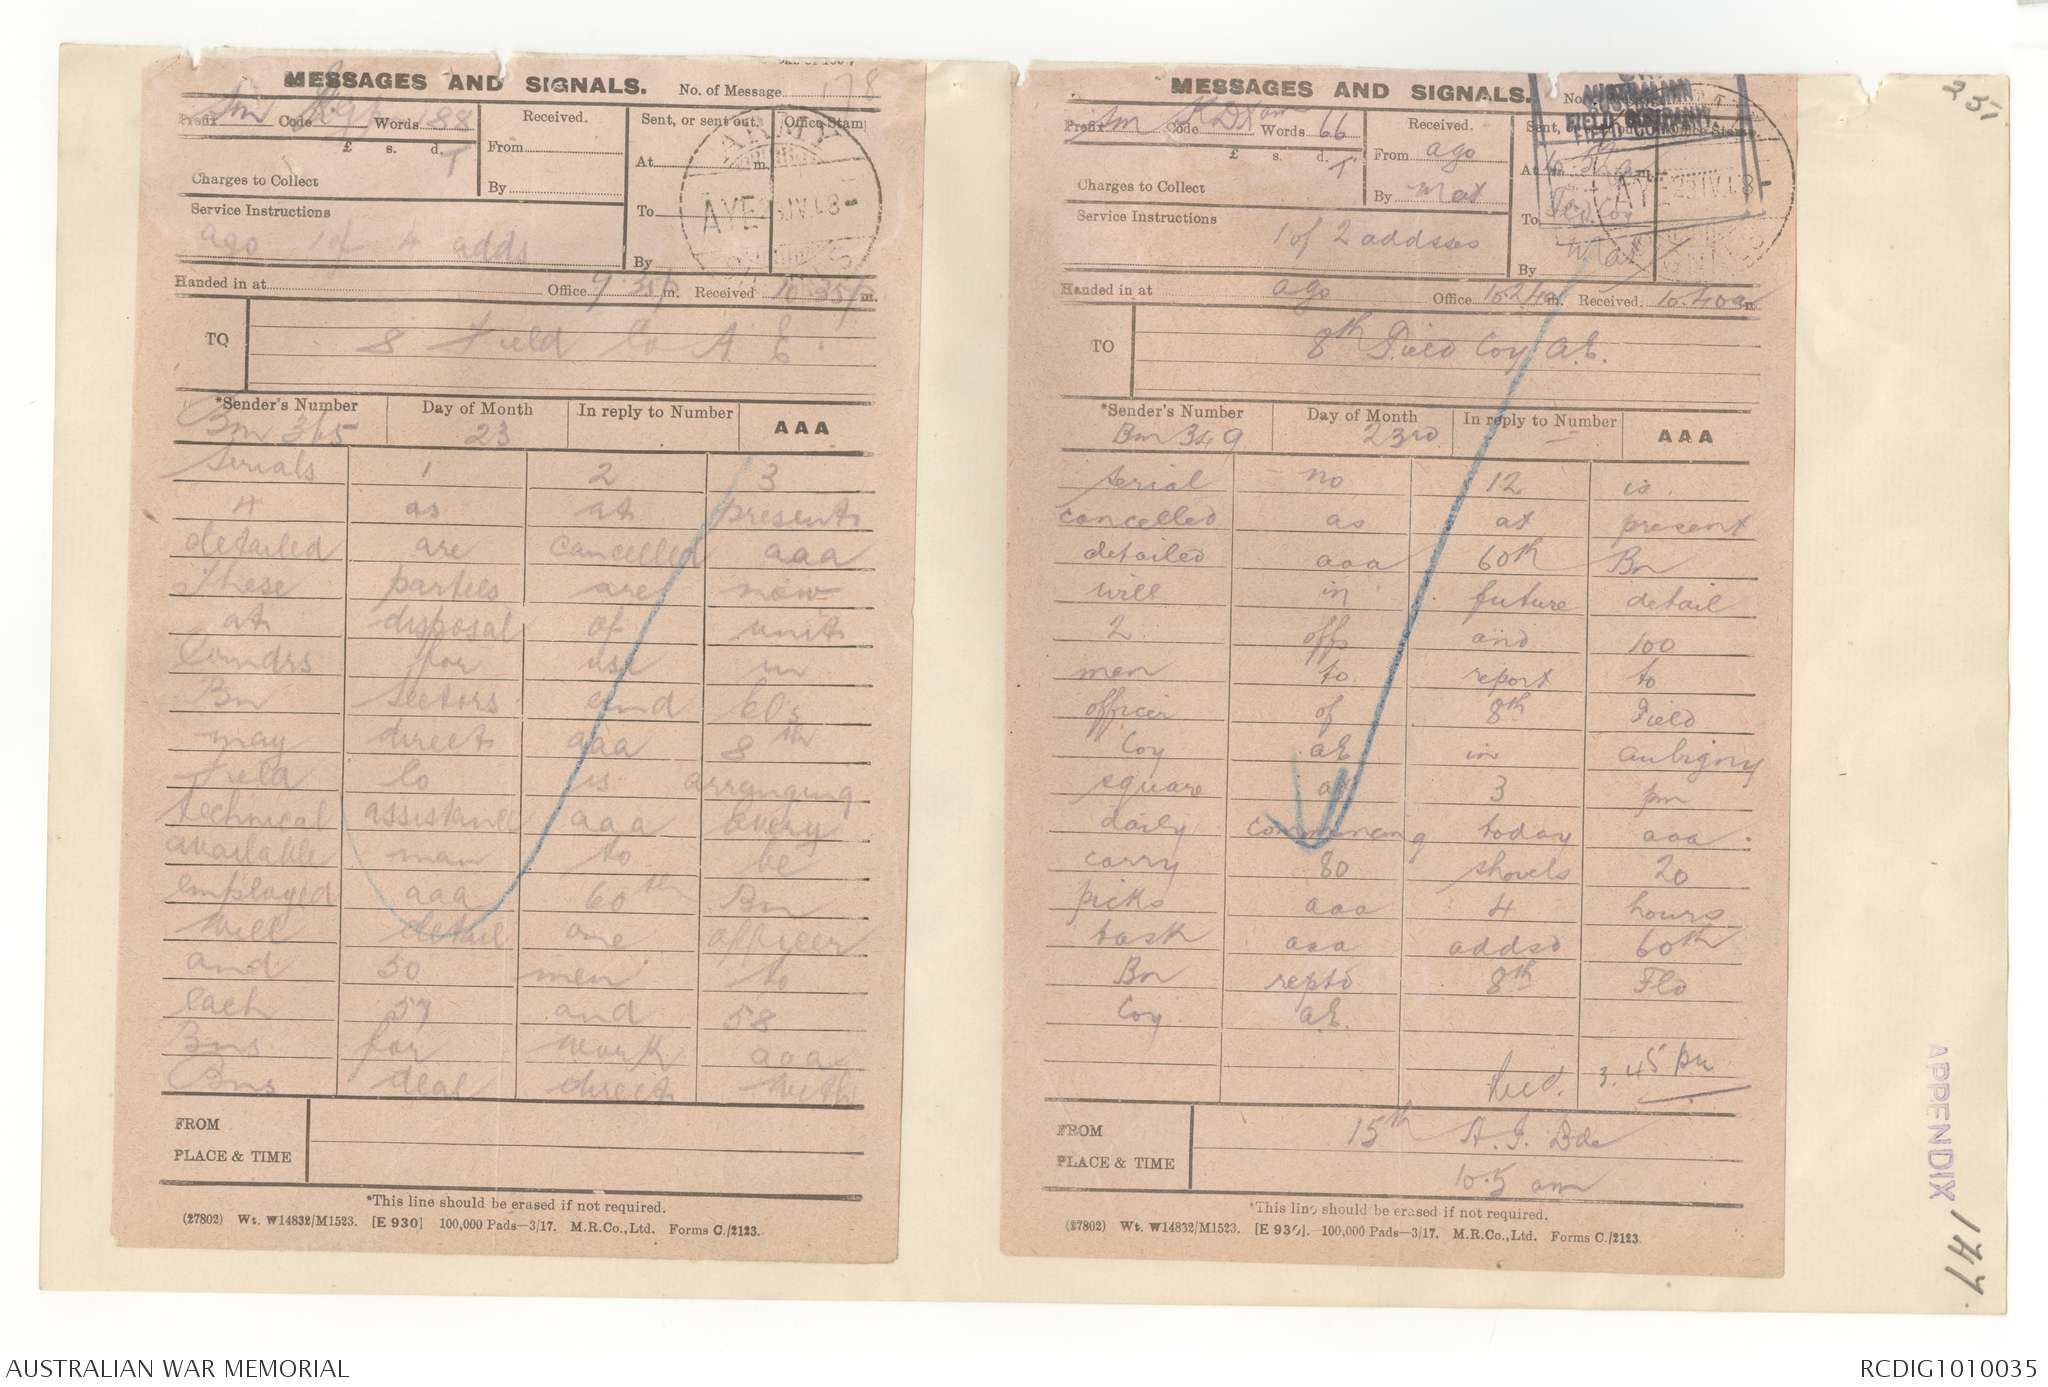 MESSAGES AND SIGNALS. No. of Message 178
Prefix Sm Code Words 188
£ s. d.
Charges to Collect
Received.
From
By
Sent, or sent out.
At m.
To
By
Office Stamp
ARMY
AYE 23.IV.18
SIGNALS
Service Instructions
ago 1 of 4 adds
Handed in at Office 9.35p m. Received 10.35p m.
TO 8 Field Co A. E.
*Sender's Number Day of Month In reply to Number AAA
Bm 365 23
Serials 1 2 3
4 as at present
detailed are cancelled aaa
These parties are now
at disposal of unit
Comdrs for use in
Bn sectors and 60s
may direct aaa 8th
Field Co is arranging
technical assistance aaa Every
available man to be
employed aaa 60th Bn
will detail one officer
and 50 men to
each 57 and 58
Bns for work aaa
Bns deal direct with
FROM
PLACE & TIME
*This line should be erased if not required.
(27802) Wt. W14832/M1523. [E 930] 100,000 Pads—3/17. M.R.Co.,Ltd. Forms C./2123.
MESSAGES AND SIGNALS. No.
Prefix Sm Code Words 66
£ s. d.
Charges to Collect
Received.
From ago
By Mat
AUSTRALIAN
FIELD COMPANY.
Sent,
At m.
To Fld. Coy
By
AYE 23.IV.18
SIGNALS
Service Instructions
1 of 2 addsses
Handed in at ago Office 10.24a m. Received 10.40a m.
TO 8th Field Coy A.E.
*Sender's Number Day of Month In reply to Number AAA
Bm 349 23rd —
Serial no 12 is
cancelled as at present
detailed aaa 60th Bn
will in future detail
2 offs and 100
men to report to
officer of 8th Field
Coy AE in aubigny
square at 3 pm
daily commencing today aaa
carry 80 shovels 20
picks aaa 4 hours
task aaa addsd 60th
Bn reptd 8th Fld
Coy AE.
Recd. 3.45 pm
FROM 15th A. I. Bde
PLACE & TIME 10.5 am
*This line should be erased if not required.
(27802) Wt. W14832/M1523. [E 930]. 100,000 Pads—3/17. M.R.Co.,Ltd. Forms C./2123.
251
APPENDIX 147
AUSTRALIAN WAR MEMORIAL
RCDIG1010035